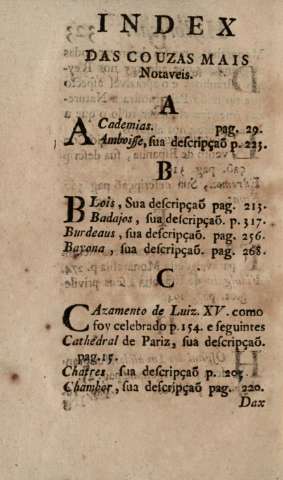 INDEX
DAS COUZAS MAIS
Notaveis.
A
Academias. pag. 29.
Amboisse, sua descripçaõ p. 223.
B
Blois, Sua descripçaõ pag. 213.
Badajos, sua descripçaõ. p. 317.
Burdeaus, sua descripçaõ. pag. 256.
Bayona, sua descripçaõ. pag. 268.
C
Cazamento de Luiz. XV. como
foy celebrado p. 154. e seguintes
Cathédral de Pariz, sua descripçaõ.
pag. 15.
Chatres, sua descripçaõ p. 205
Chambor, sua descripçaõ pag. 220.
Dax